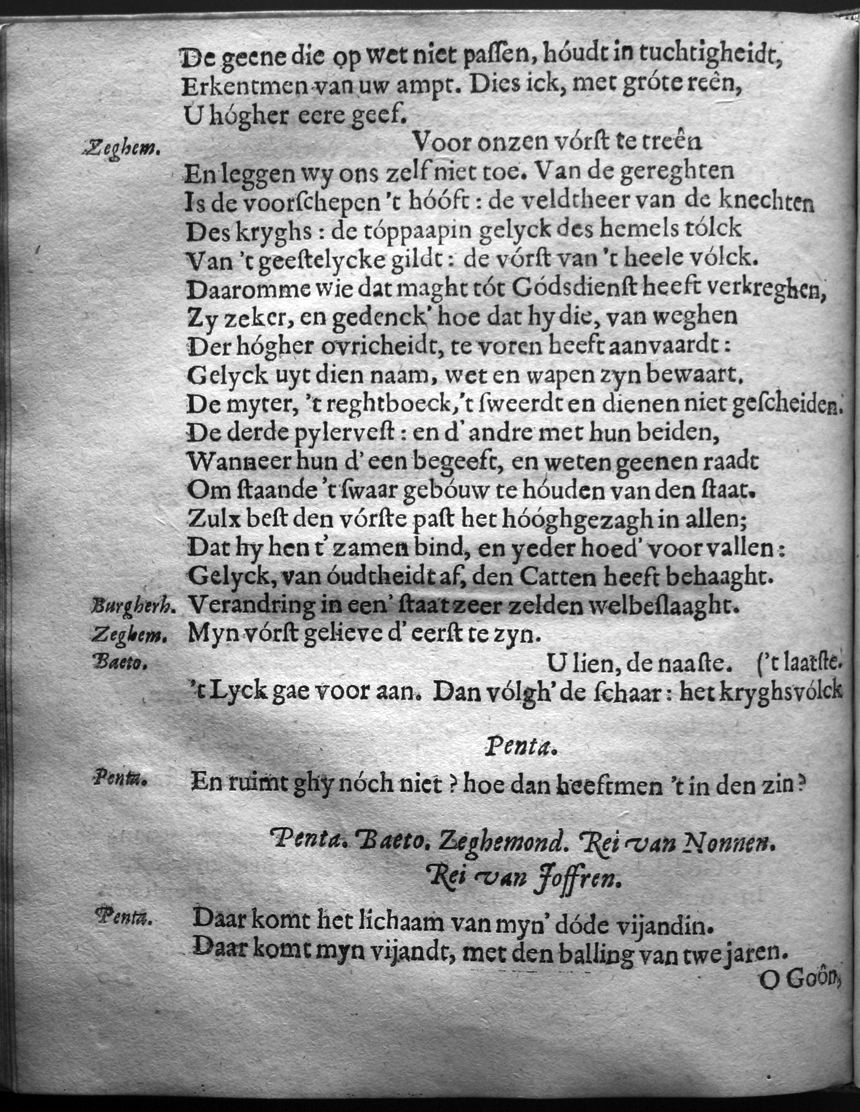 De geene die op wet niet paſſen, hóudt in tuchtigheidt,
Erkentmen van uw ampt. Dies ick, met gróte reên,
U hógher eere geef.
Zeghem. Voor onzen vórſt te treên
En leggen wy ons zelf niet toe. Van de gereghten
Is de voorſchepen 't hóóft : de veldtheer van de knechten
Des kryghs : de tóppaapin gelyck des hemels tólck
Van 't geeſtelycke gildt : de vórſt van 't heele vólck.
Daaromme wie dat maght tót Gódsdienſt heeft verkreghen,
Zy zeker, en gedenck' hoe dat hy die, van weghen
Der hógher ovricheidt, te voren heeft aanvaardt :
Gelyck uyt dien naam, wet en wapen zyn bewaart.
De myter, 't reghtboeck, 't ſweerdt en dienen niet geſcheiden.
De derde pylerveſt : en d' andre met hun beiden,
Wanneer hun d' een begeeft, en weten geenen raadt
Om ſtaande 't ſwaar gebóuw te hóuden van den ſtaat.
Zulx beſt den vórſte paſt het hóóghgezagh in allen;
Dat hy hen t' zamen bind, en yeder hoed' voor vallen :
Gelyck, van óudtheidt af, den Catten heeft behaaght.
Burgherh. Verandring in een' ſtaat zeer zelden welbeſlaaght.
Zeghem. Myn vórſt gelieve d' eerſt te zyn.
Baeto. U lien, de naaſte. ('t laatſte.
't Lyck gae voor aan. Dan vólgh' de ſchaar : het kryghsvólck
Penta.
Penta. En ruimt ghy nóch niet ? hoe dan heeftmen 't in den zin ?
Penta. Baeto. Zeghemond. Rei van Nonnen.
Rei van Joffren.
Penta. Daar komt het lichaam van myn' dóde vijandin.
Daar komt myn vijandt, met den balling van twe jaren.
O Goôn,